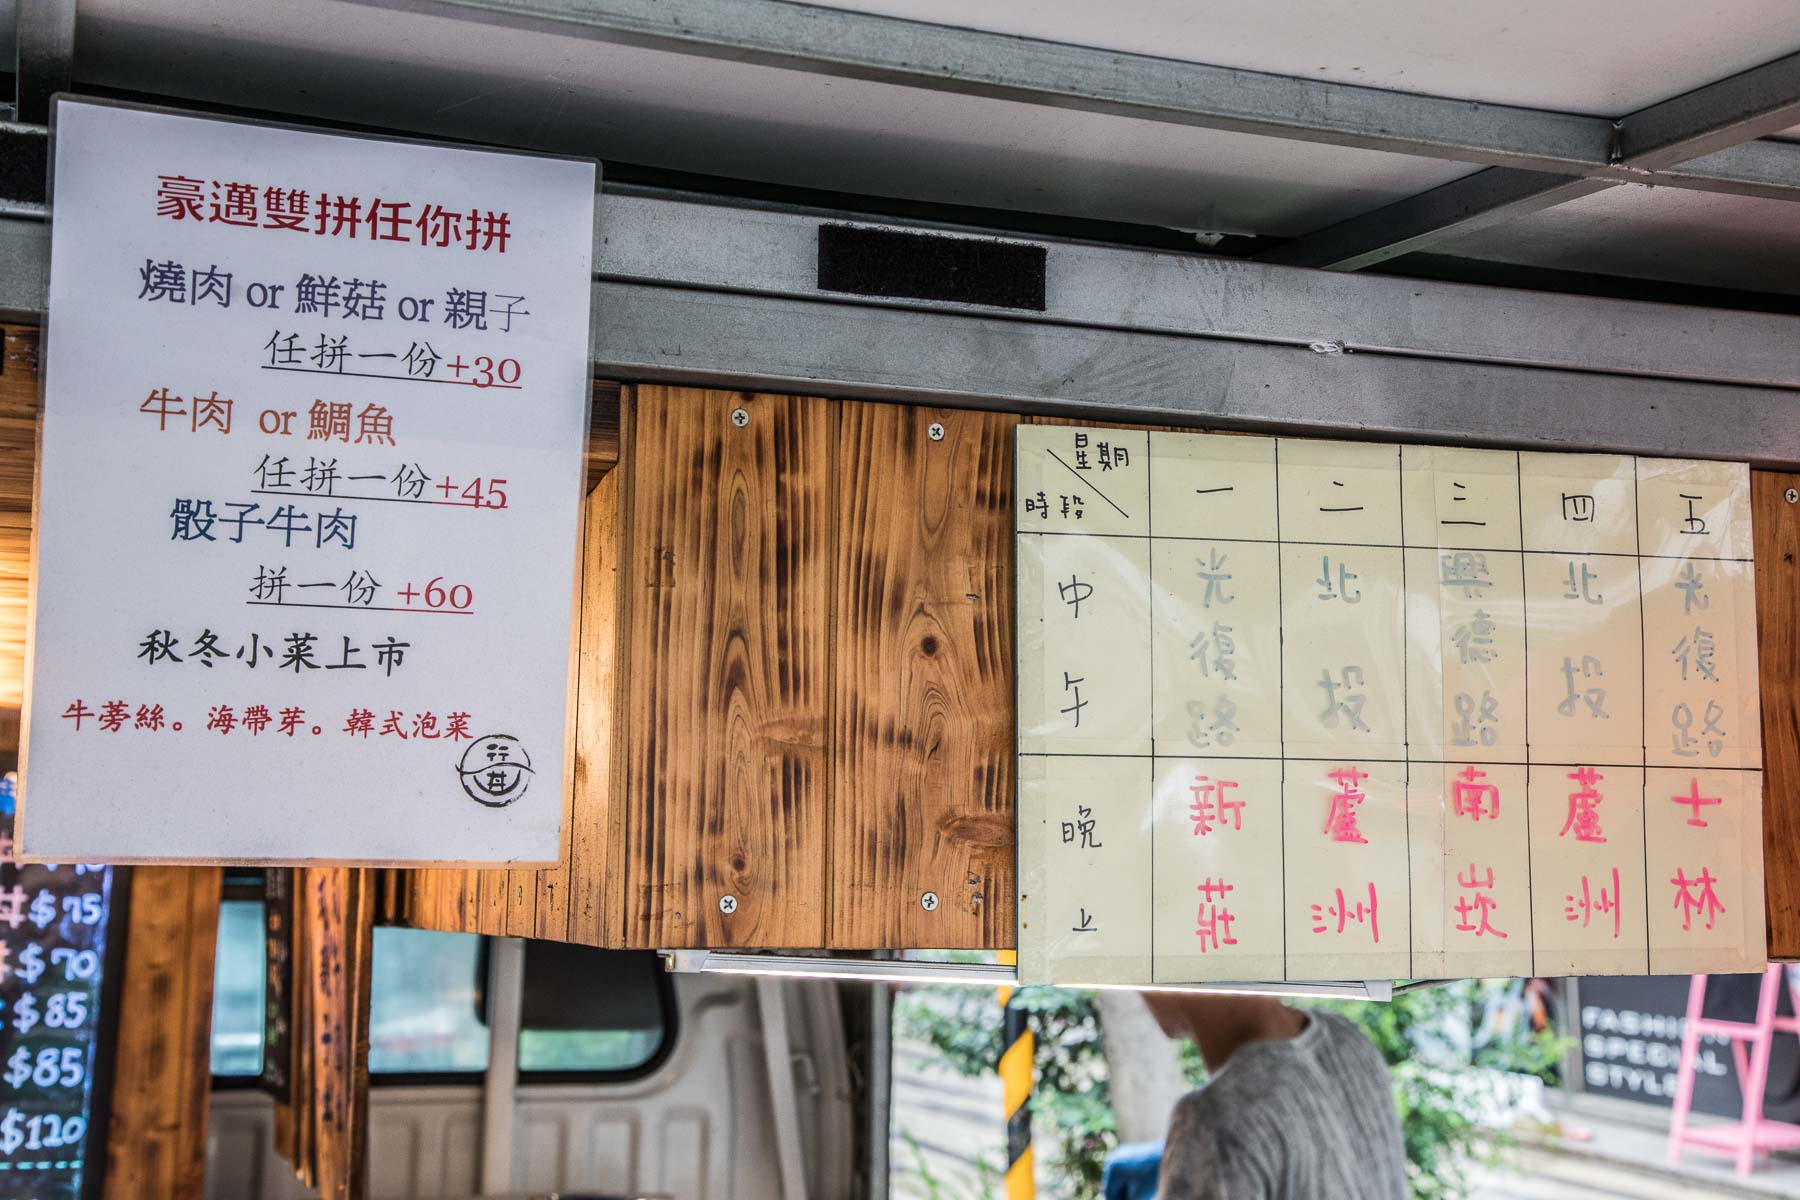 豪邁雙拼任你拼
燒肉 or 鮮菇 or 親子
任拼一份+30
牛肉 or 鯛魚
任拼一份+45
骰子牛肉
拼一份 +60
秋冬小菜上市
牛蒡絲。海帶芽。韓式泡菜
行丼
$75
$70
$85
$85
$120
星期 一 二 三 四 五
時段
中午 光復路 北投 興德路 北投 光復路
晚上 新莊 蘆洲 南崁 蘆洲 士林
FASHION
SPECIAL
STYLE